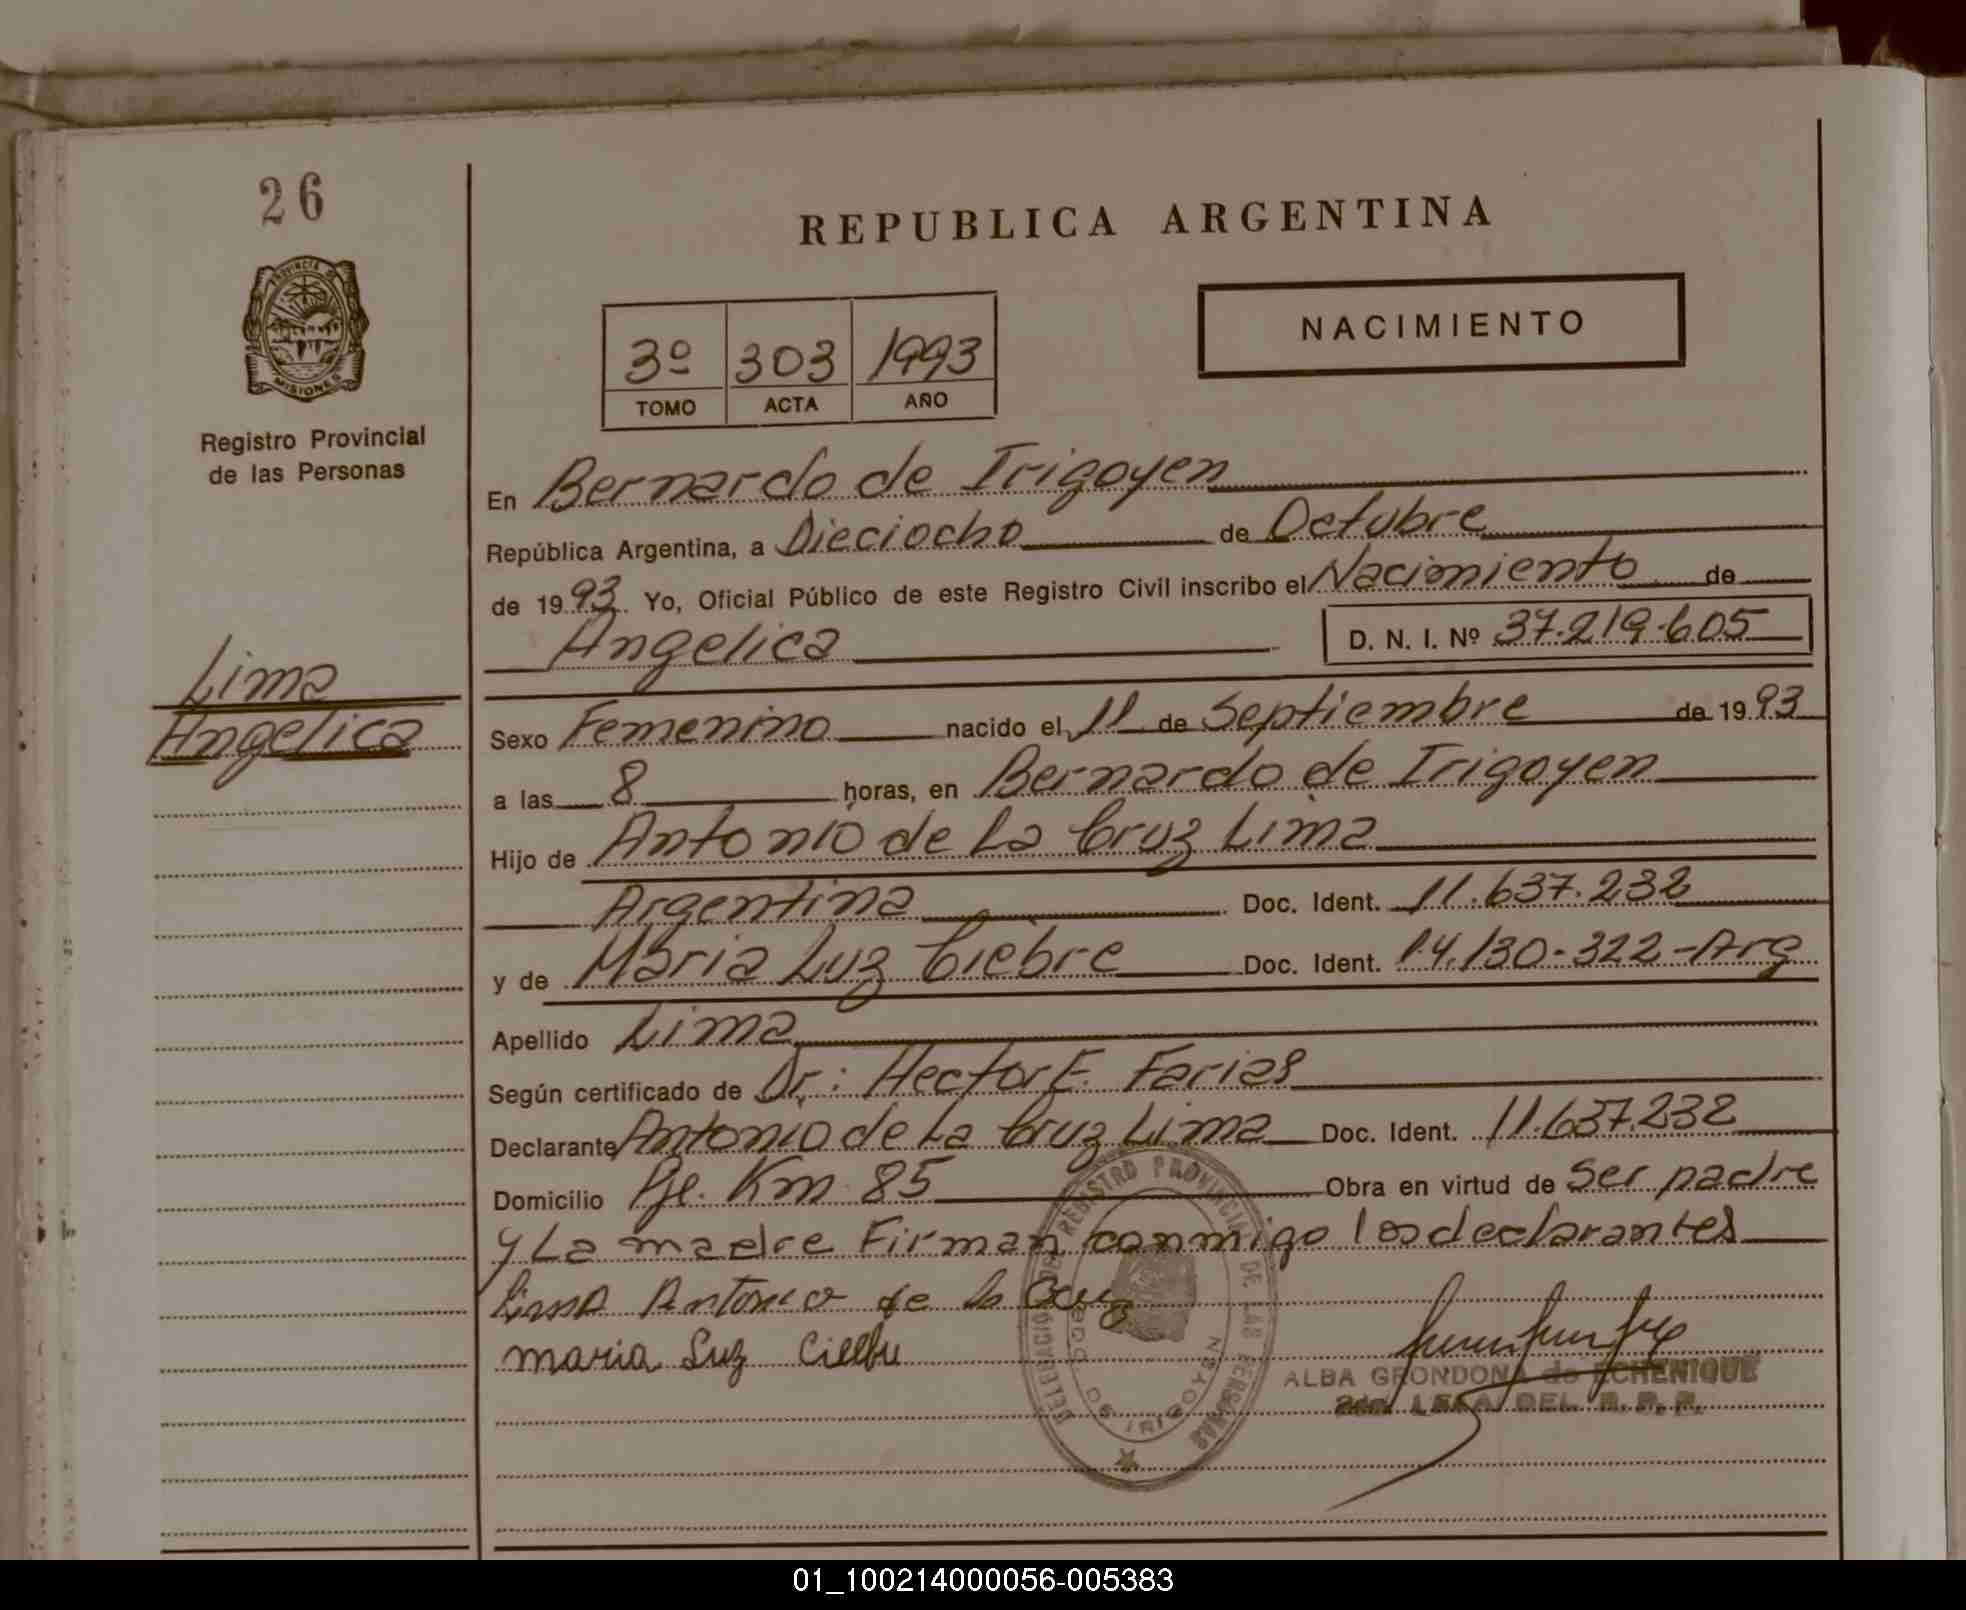 26
REPUBLICA ARGENTINA
PROVINCIA DE
MISIONES
NACIMIENTO
3º 303 1993
TOMO ACTA AÑO
Registro Provincial
de las Personas
En Bernardo de Irigoyen
República Argentina, a Dieciocho de Octubre
de 1993 Yo, Oficial Público de este Registro Civil inscribo el Nacimiento de
Angelica D. N. I. Nº 37.219.605
Lima
Angelica
Sexo Femenino nacido el 11 de Septiembre de 1993
a las 8 horas, en Bernardo de Irigoyen
Hijo de Antonio de La Cruz Lima
Argentina Doc. Ident. 11.637.232
y de Maria Luz Ciebre Doc. Ident. 14.130-322-Arg
Apellido Lima
Según certificado de Dr: Hector E. Farias
Declarante Antonio de La Cruz Lima Doc. Ident. 11.637.232
Domicilio Pje. Km 85 Obra en virtud de Ser padre
y La madre Firman conmigo los declarantes
Lima Antonio de la Cruz
maria Luz
DELEGACION DEL REGISTRO PROVINCIAL DE LAS PERSONAS
DE IRIGOYEN
ALBA GRONDONA de ECHENIQUE
DEL. R. P. P.
01_100214000056-005383